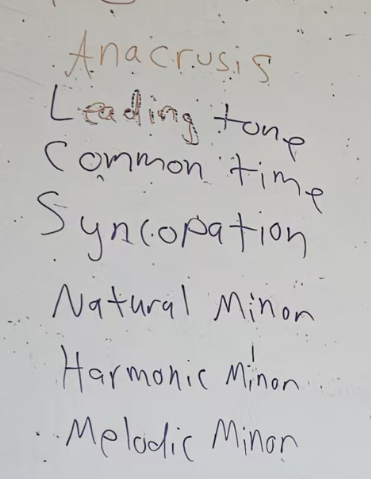 Anacrusis
Leading tone
Common time
Syncopation
Natural Minor
Harmonic Minor
Melodic Minor